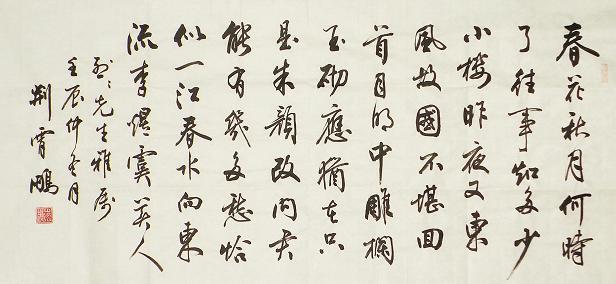 春花秋月何時
了往事知多少
小樓昨夜又東
風故國不堪回
首月明中雕欄
玉砌應猶在只
是朱顏改问君
能有幾多愁恰
似一江春水向東
流李煜虞美人
先生雅属
壬辰仲冬月
荆霄鹏